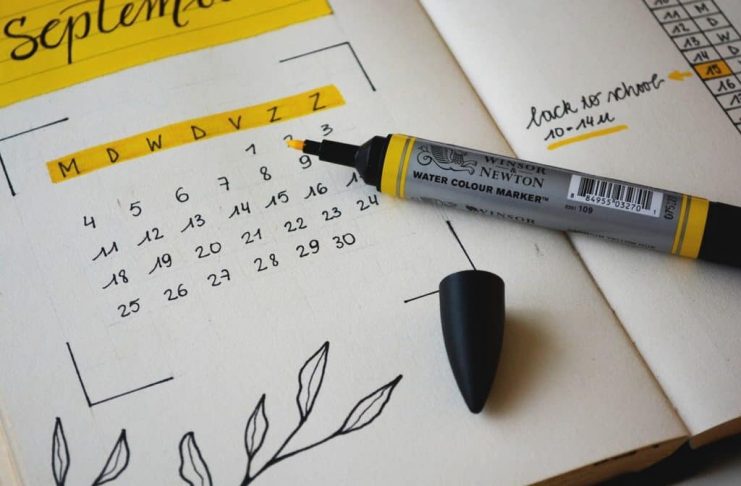 September
M D W D V Z Z
1 2 3
4 5 6 7 8 9
11 12 13 14 15 16 17
18 19 20 21 22 23 24
25 26 27 28 29 30
back to school
10-14u
11 M
12 D
13 W
14 D
15
16
17
18
WINSOR
&
NEWTON
WATER COLOUR MARKER™
WINSOR
8 84955 03270 1
109